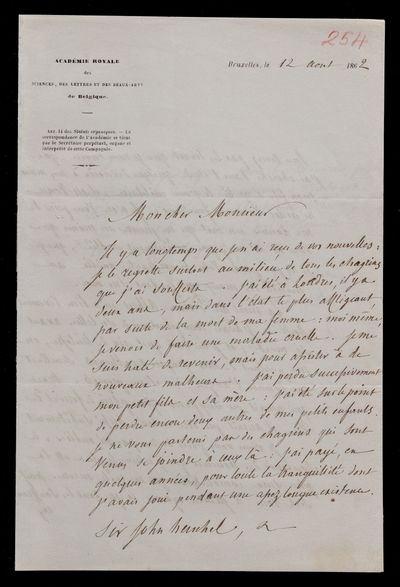 254
ACADÉMIE ROYALE
des
SCIENCES, DES LETTRES ET DES BEAUX-ARTS
de Belgique.
Bruxelles, le 12 aout 1862
ART. 14 des Statuts organiques. — La
correspondance de l'Académie se tient
par le Secrétaire perpétuel, organe et
interprète de cette Compagnie.
Mon cher Monsieur
Il y a longtemps que je n'ai reçu de vos nouvelles;
je le regrette surtout au milieu de tous les chagrins
que j'ai soufferts. j'ai été à Londres, il y a
deux ans, mais dans l'état le plus affligeant
par suite de la mort de ma femme: moi même,
je venois de faire une maladie cruelle. je me
suis haté de revenir, mais pour assister à de
nouveaux malheurs. j'ai perdu successivement
mon petit fils et sa mère: j'ai été sur le point
de perdre encore deux autres de mes petits enfants.
je ne vous parlerai pas des chagrins qui sont
venus se joindre à ceux là: j'ai payé, en
quelques années, pour toute la tranquilité dont
j'avais joui pendant une assez longue existence.
Sir John herschel, &